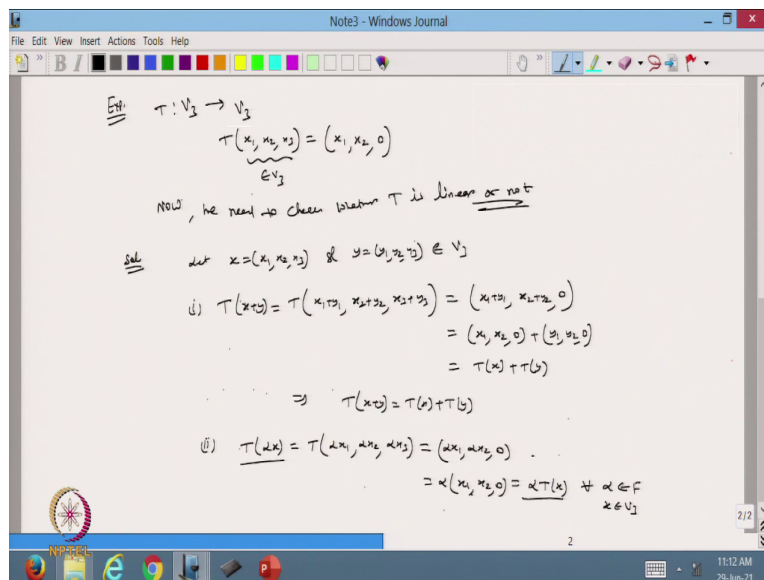 Note3 - Windows Journal
File Edit View Insert Actions Tools Help
B I
Exp: T : V₃ → V₃
T(x₁, x₂, x₃) = (x₁, x₂, 0)
∈ V₃
Now, we need to check whether T is linear or not
Sol let x = (x₁, x₂, x₃) & y = (y₁, y₂, y₃) ∈ V₃
(i) T(x+y) = T(x₁+y₁, x₂+y₂, x₃+y₃) = (x₁+y₁, x₂+y₂, 0)
= (x₁, x₂, 0) + (y₁, y₂, 0)
= T(x) + T(y)
⇒ T(x+y) = T(x) + T(y)
(ii) T(αx) = T(αx₁, αx₂, αx₃) = (αx₁, αx₂, 0)
= α(x₁, x₂, 0) = αT(x) ∀ α ∈ F
x ∈ V₃
2/2
2
NPTEL
11:12 AM
29-Jun-21